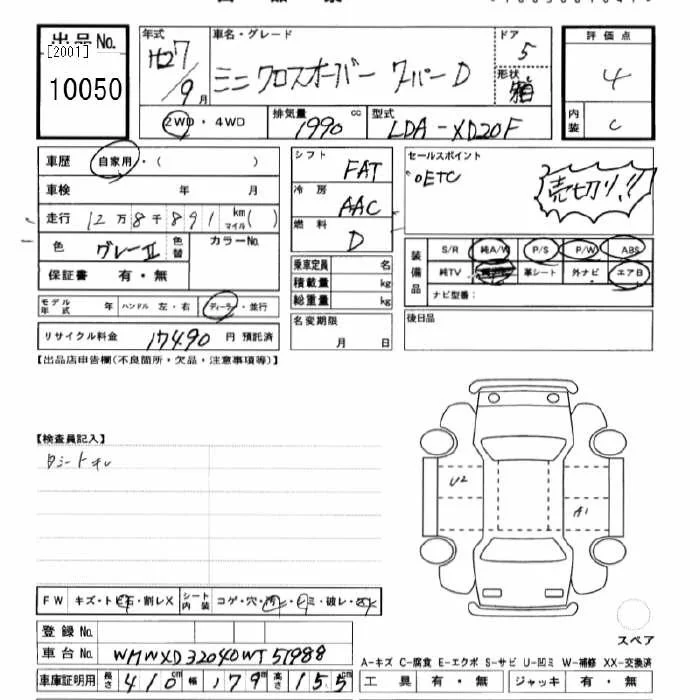 出品No.
[2001]
10050
年式
H27
9月
車名・グレード
ミニ クロスオーバー クーパーD
ドア
5
形状
箱
評価点
4
内装
C
2WD・4WD
排気量 1990 cc
型式 LDA-XD20F
車歴 自家用・( )
車検 年 月
走行 12万8千891 km マイル( )
色 グレーII 色替 カラーNo.
保証書 有・無
モデル年式 年 ハンドル 左・右 ディーラー・並行
リサイクル料金 17490 円 預託済
シフト FAT
冷房 AAC
燃料 D
乗車定員 名
積載量 kg
総重量 kg
名変期限
月 日
セールスポイント
○ETC
売切り!!
装備品
S/R 純A/W P/S P/W ABS
純TV 革シート 外ナビ エアB
ナビ型番:
後日品
【出品店申告欄(不良箇所・欠品・注意事項等)】
【検査員記入】
U2
A1
スペア
FW キズ・トビ石・割レX シート内装 コゲ・穴・汚レ・シミ・破レ・
登録No.
車台No. WMWXD32040WT51988
車庫証明用 長さ 410cm 幅 179cm 高さ 155cm
A-キズ C-腐食 E-エクボ S-サビ U-凹ミ W-補修 XX-交換済
工具 有・無 ジャッキ 有・無